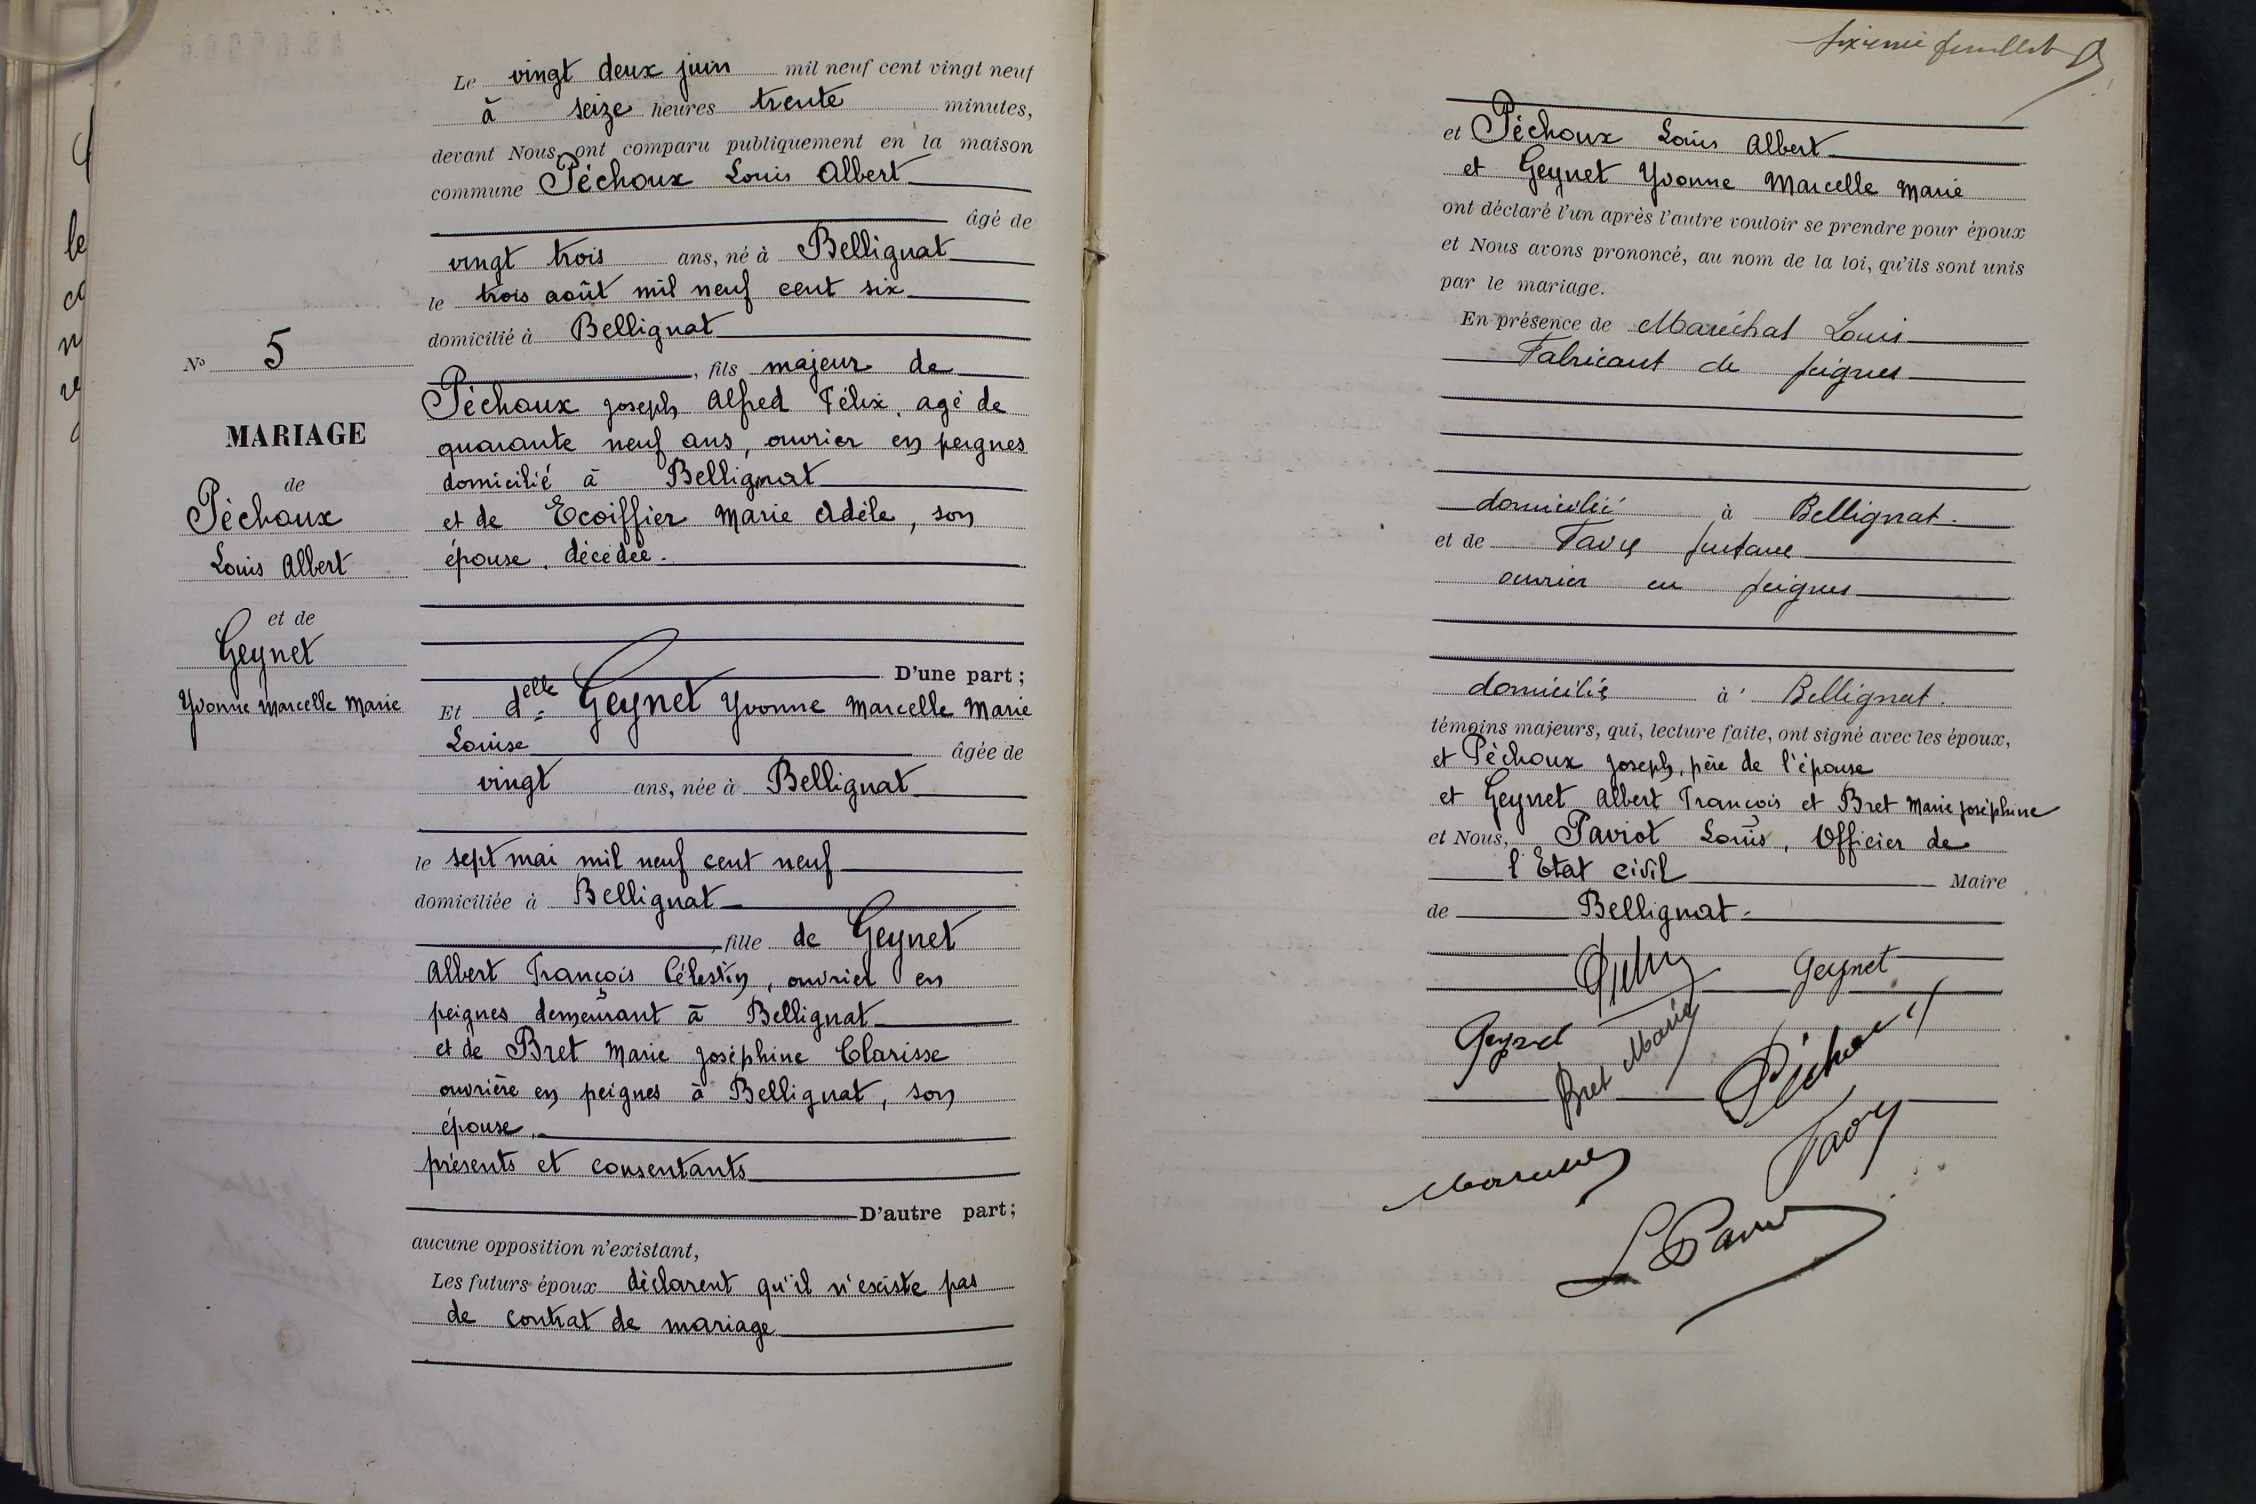 Le vingt deux juin mil neuf cent vingt neuf
à seize heures trente minutes,
devant Nous ont comparu publiquement en la maison
commune Péchoux Louis Albert
âgé de
vingt trois ans, né à Bellignat
le trois août mil neuf cent six
domicilié à Bellignat
, fils majeur de
Péchoux Joseph Alfred Félix, agé de
quarante neuf ans, ouvrier en peignes
domicilié à Bellignat
et de Ecoiffier Marie Adèle, son
épouse, décédée.
D'une part ;
Et delle Geynet Yvonne Marcelle Marie
Louise âgée de
vingt ans, née à Bellignat
le sept mai mil neuf cent neuf
domiciliée à Bellignat
, fille de Geynet
Albert François Célestin, ouvrier en
peignes demeurant à Bellignat
et de Bret Marie Joséphine Clarisse
ouvrière en peignes à Bellignat, son
épouse.
présents et consentants
D'autre part ;
aucune opposition n'existant,
Les futurs époux déclarent qu'il n'existe pas
de contrat de mariage
No 5
MARIAGE
de
Péchoux
Louis Albert
et de
Geynet
Yvonne Marcelle Marie
sixième feuillet
et Péchoux Louis Albert
et Geynet Yvonne Marcelle Marie
ont déclaré l'un après l'autre vouloir se prendre pour époux
et Nous avons prononcé, au nom de la loi, qu'ils sont unis
par le mariage.
En présence de Maréchal Louis
Fabricant de peignes
domicilié à Bellignat.
et de Favy Gustave
ouvrier en peignes
domicilié à Bellignat.
témoins majeurs, qui, lecture faite, ont signé avec les époux,
et Péchoux Joseph, père de l'épouse
et Geynet Albert François et Bret Marie Joséphine
et Nous, Paviot Louis, Officier de
l'Etat civil Maire
de Bellignat.
Geynet
Geynet
Bret Marie
Péchoux
Favy
L Paviot